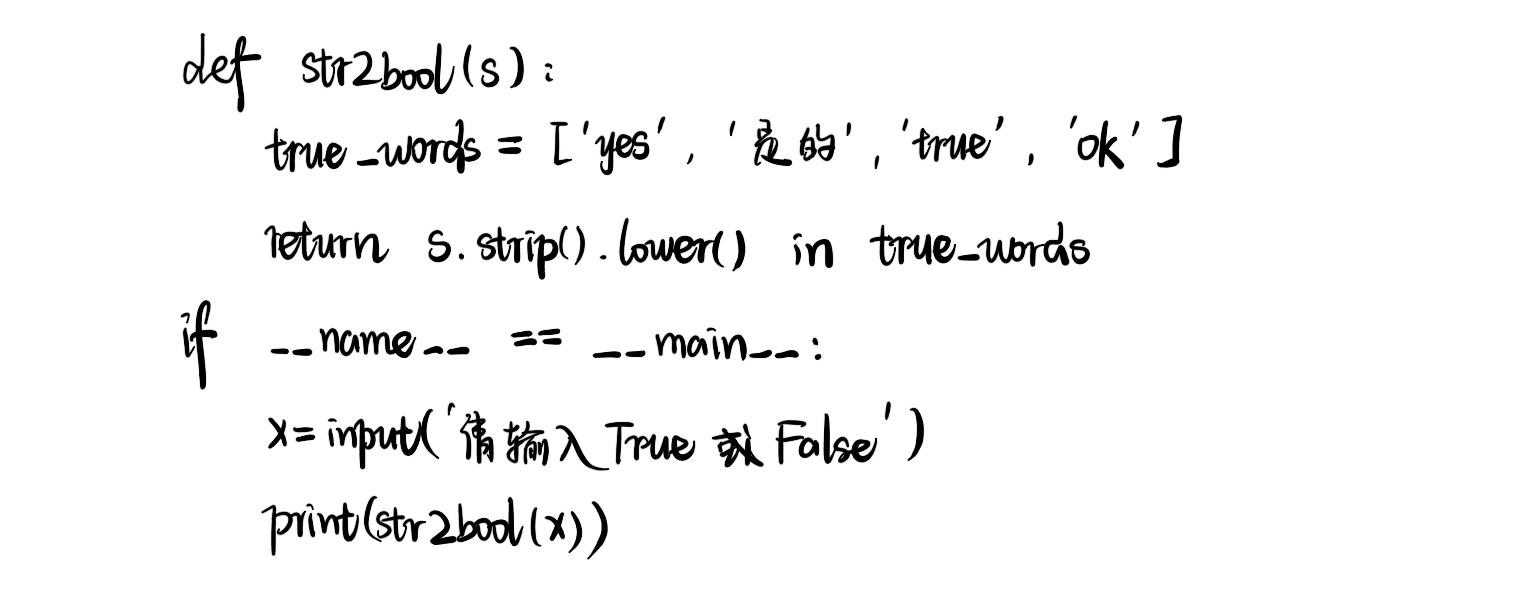 def str2bool(s):
true_words = ['yes', '是的', 'true', 'ok']
return s.strip().lower() in true_words
if __name__ == __main__:
x=input('请输入True或False')
print(str2bool(x))